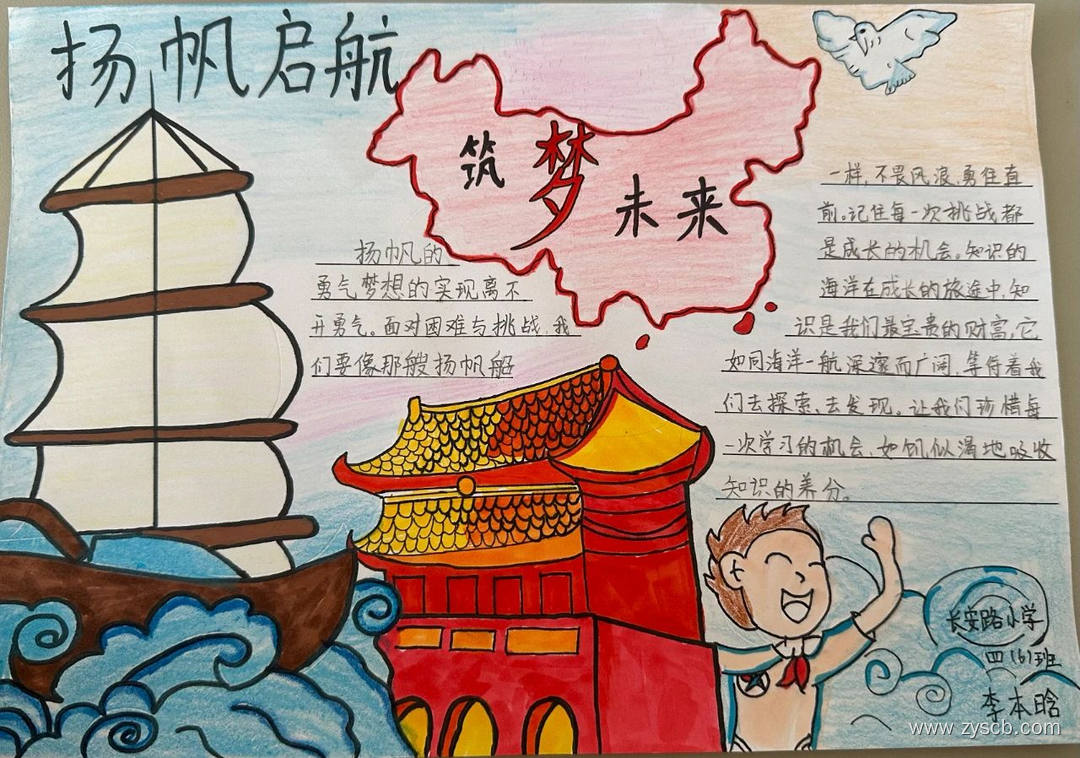 扬帆启航
筑梦未来
扬帆的
勇气梦想的实现离不
开勇气。面对困难与挑战,我
们要像那艘扬帆艇
一样,不畏风浪,勇往直
前。记住每一次挑战都
是成长的机会。知识的
海洋在成长的旅途中,知
识是我们最宝贵的财富,它
如同海洋一航深邃而广阔,等待着我
们去探索、去发现。让我们珍惜每
一次学习的机会,如饥似渴地吸收
知识的养分。
长安路小学
四(6)班
李本晗
www.zyscb.com